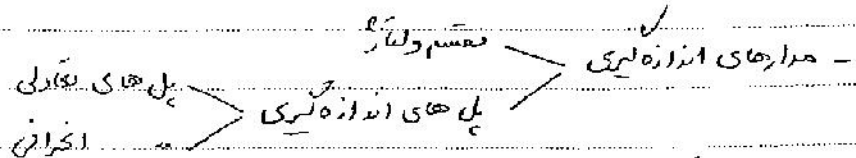 - مدارهای اندازه‌گیری
مقسم ولتاژ
پل های اندازه گیری
پل های تعادلی
" " انحرافی